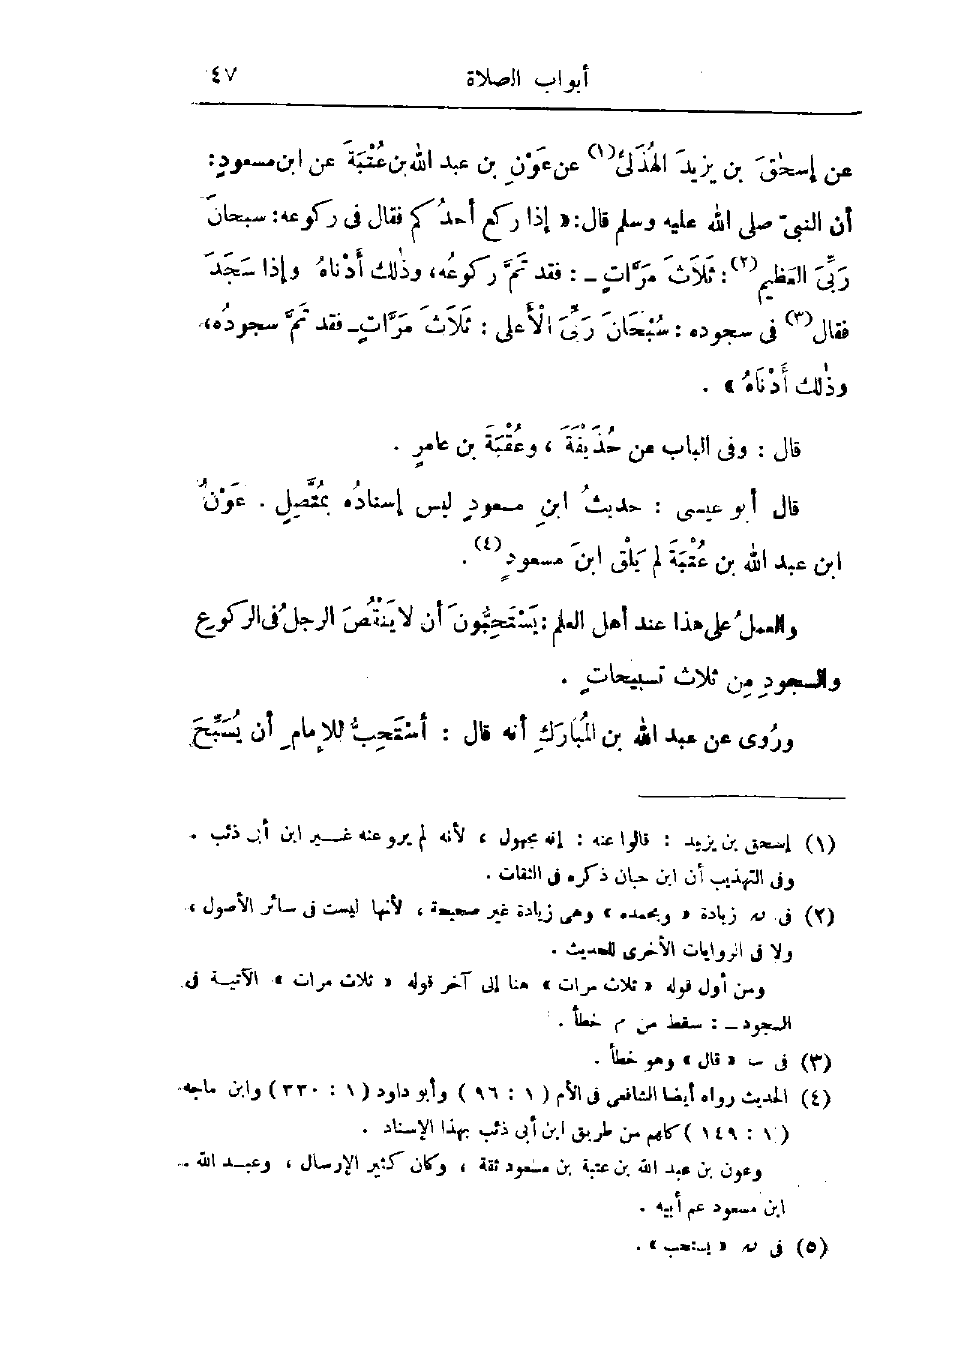 أبواب الصلاة ٤٧
عن إسحٰقَ بن يزيدَ الهُذَلىِّ(١) عن عَوْنِ بن عبد الله بن عُتْبَةَ عن ابن مسعودٍ:
أن النبىّ صلى الله عليه وسلم قال: « إذا ركع أحدُكم فقال فى ركوعه: سبحانَ
رَبِّىَ العظيمِ(٢): ثَلَاثَ مَرَّاتٍ ـ : فقد تَمَّ ركوعُه، وذٰلك أَدْناهُ وإذا سَجَدَ
فقال(٣) فى سجوده : سُبْحَانَ رَبِّىَ الْأَعلى : ثَلَاثَ مَرَّاتٍ ـ فقد تَمَّ سجودُه،
وذٰلك أَدْنَاهُ » .
قال : وفى الباب عن حُذَيْفَةَ ، وعُقْبَةَ بن عامرٍ .
قال أبو عيسى : حديثُ ابنِ مسعودٍ ليس إسنادُه بمُتَّصِلٍ . عَوْنُ
ابن عبد الله بن عُتْبَةَ لم يَلْقَ ابنَ مسعودٍ(٤) .
والعملُ على هذا عند أهل العلم : يَسْتَحِبُّونَ أن لا يَنْقُصَ الرجلُ فى الركوعِ
والسجودِ مِن ثلاث تسبيحاتٍ .
ورُوى عن عبد الله بن المُبَارَكِ أنه قال : أَسْتَحِبُّ للإمامِ أن يُسَبِّحَ
(١) إسحق بن يزيد : قالوا عنه : إنه مجهول ، لأنه لم يرو عنه غير ابن أبى ذئب .
وفى التهذيب أن ابن حبان ذكره فى الثقات .
(٢) فى نه زيادة « وبحمده » وهى زيادة غير صحيحة ، لأنها ليست فى سائر الأصول ،
ولا فى الروايات الأخرى للحديث .
ومن أول قوله « ثلاث مرات » هنا إلى آخر قوله « ثلاث مرات » الآتية فى
السجود ـ : سقط من م خطأ .
(٣) فى ب « قال » وهو خطأ .
(٤) الحديث رواه أيضا الشافعى فى الأم ( ١ : ٩٦ ) وأبو داود ( ١ : ٣٣٠ ) وابن ماجه
( ١ : ١٤٩ ) كلهم من طريق ابن أبى ذئب بهذا الإسناد .
وعون بن عبد الله بن عتبة بن مسعود ثقة ، وكان كثير الإرسال ، وعبد الله
ابن مسعود عم أبيه .
(٥) فى نه « يستحب » .